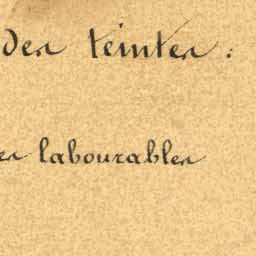 des teintes :
es labourables